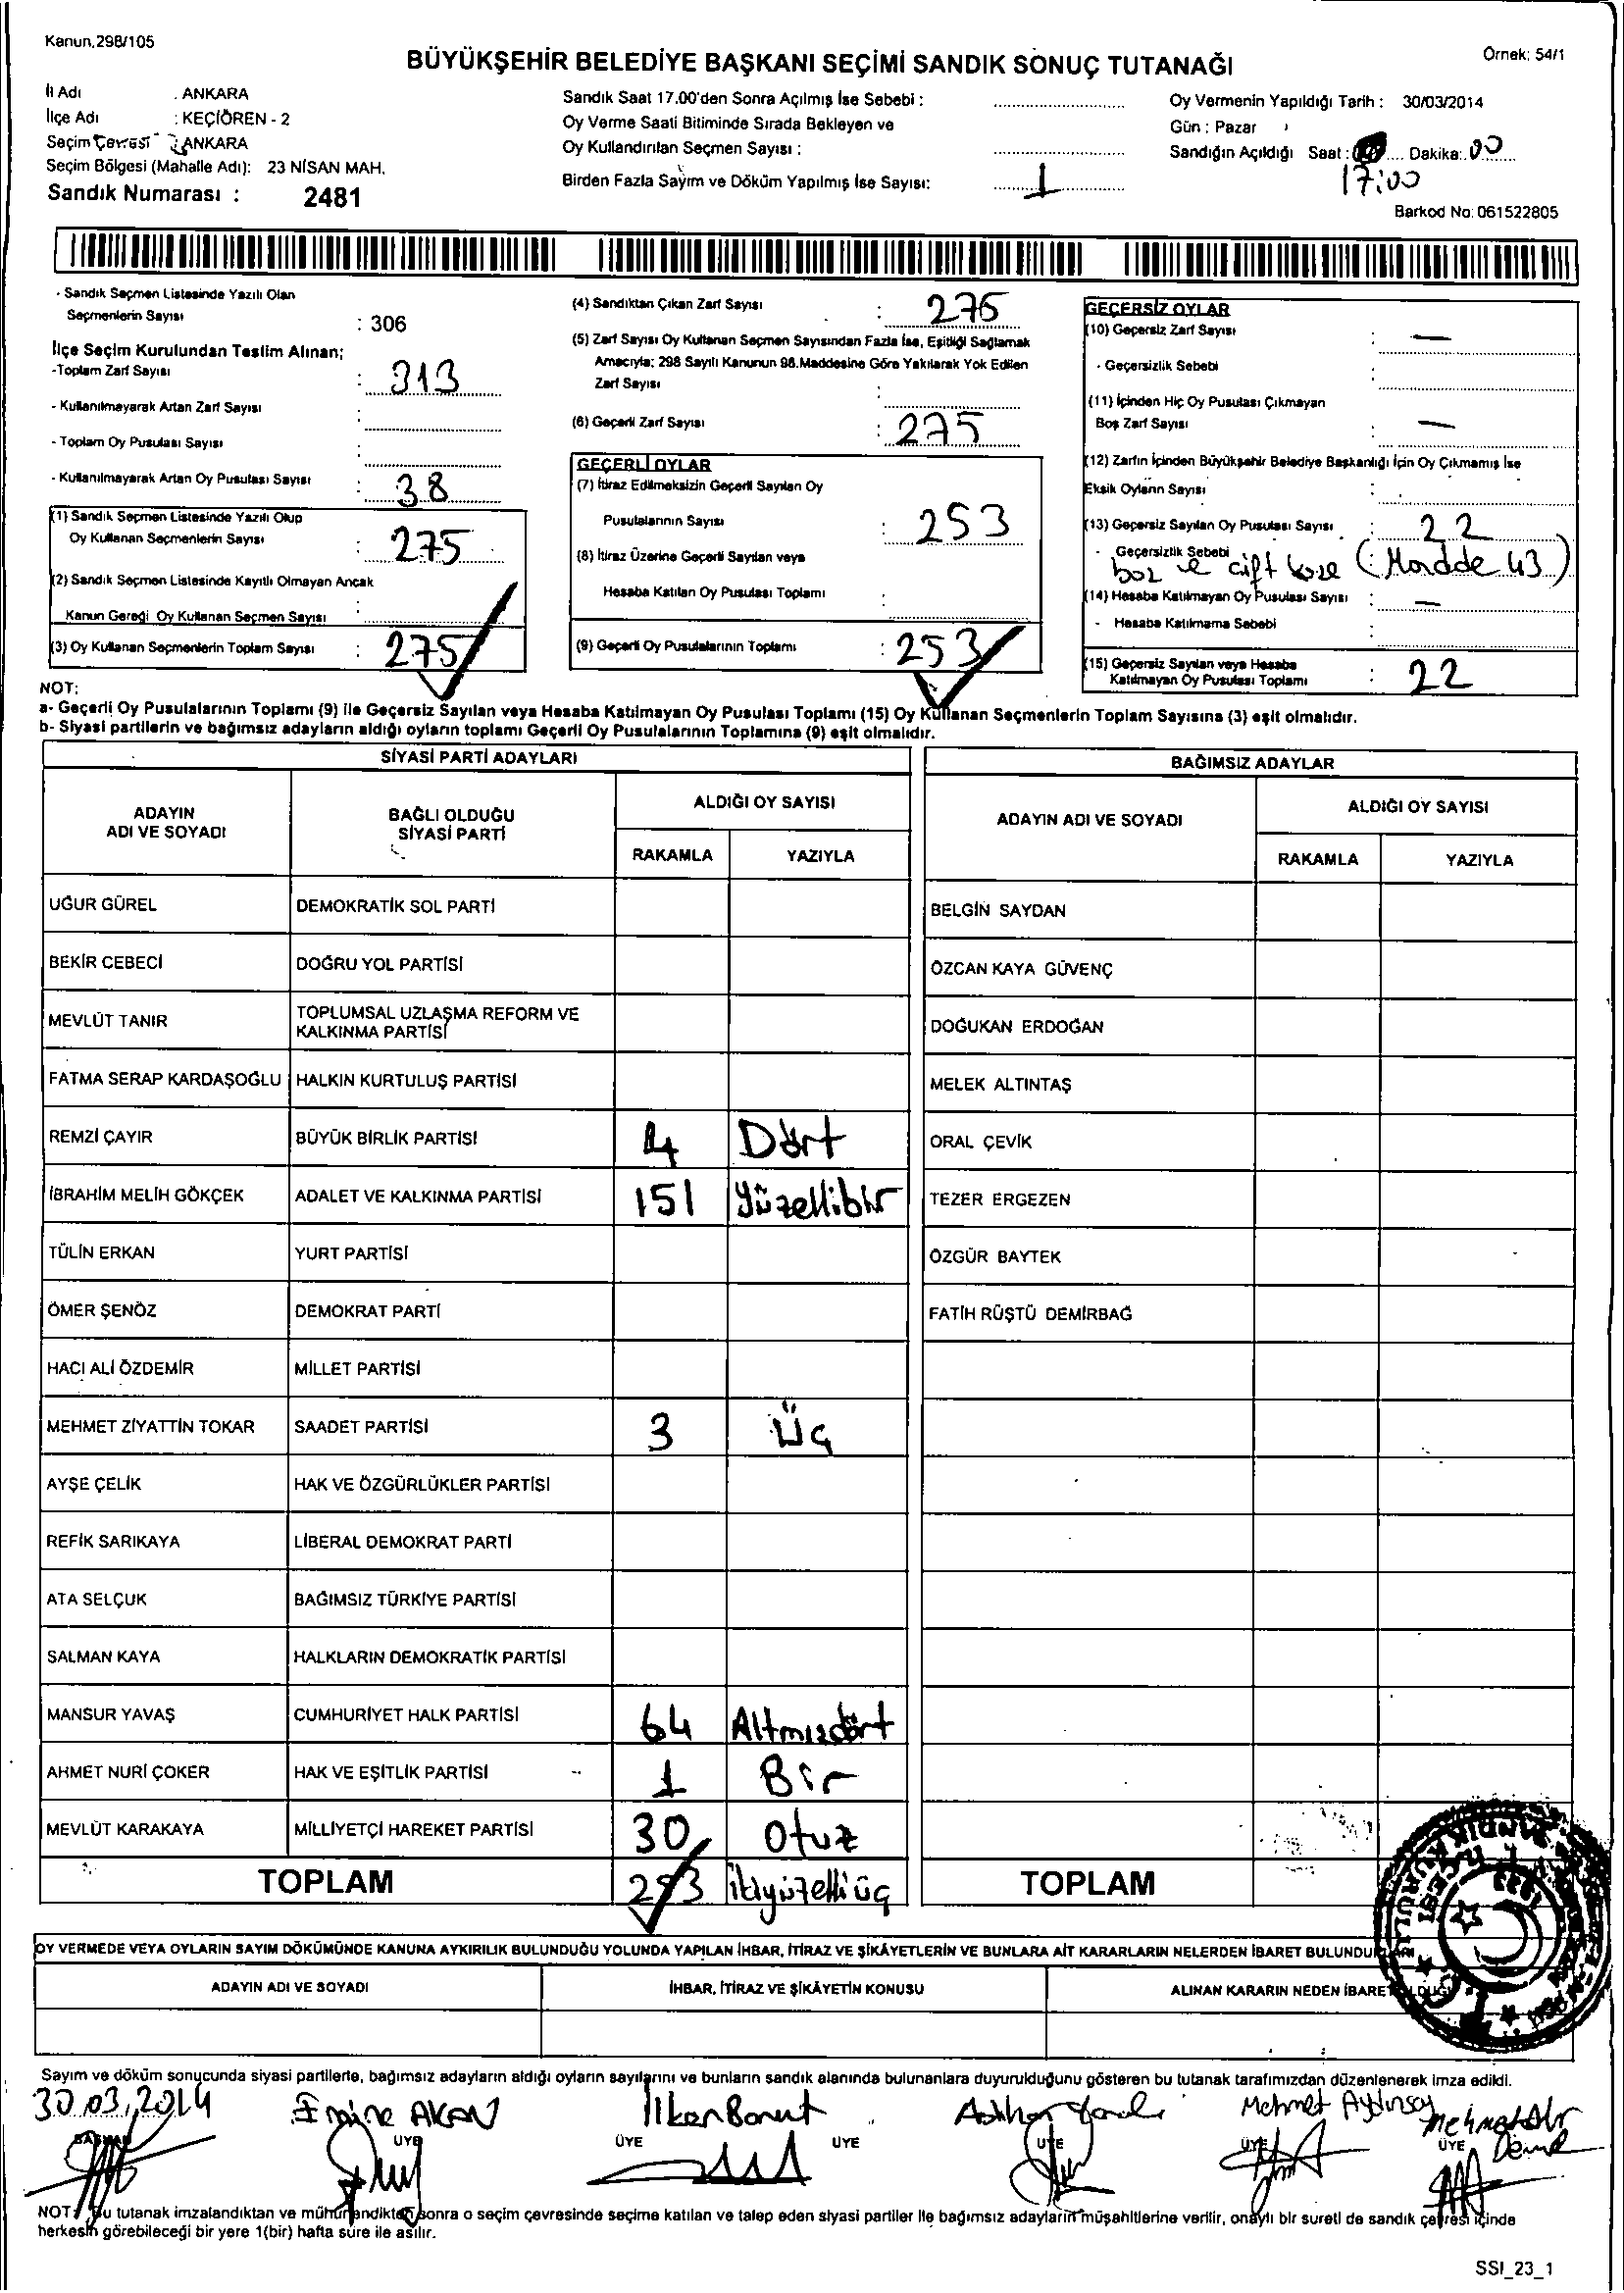 Kanun.298/105
BÜYÜKŞEHİR BELEDİYE BAŞKANI SEÇİMİ SANDIK SONUÇ TUTANAĞI
Örnek: 54/1
İl Adı : ANKARA
İlçe Adı : KEÇİÖREN - 2
Seçim Çevresi : ANKARA
Seçim Bölgesi (Mahalle Adı): 23 NİSAN MAH.
Sandık Numarası : 2481
Sandık Saat 17.00'den Sonra Açılmış İse Sebebi :
Oy Verme Saati Bitiminde Sırada Bekleyen ve
Oy Kullandırılan Seçmen Sayısı :
Birden Fazla Sayım ve Döküm Yapılmış İse Sayısı: 1
Oy Vermenin Yapıldığı Tarih : 30/03/2014
Gün : Pazar
Sandığın Açıldığı Saat : Dakika: 00
17:00
Barkod No: 061522805
- Sandık Seçmen Listesinde Yazılı Olan
Seçmenlerin Sayısı : 306
İlçe Seçim Kurulundan Teslim Alınan;
-Toplam Zarf Sayısı : 313
- Kullanılmayarak Artan Zarf Sayısı :
- Toplam Oy Pusulası Sayısı :
- Kullanılmayarak Artan Oy Pusulası Sayısı : 38
(1) Sandık Seçmen Listesinde Yazılı Olup
Oy Kullanan Seçmenlerin Sayısı : 275
(2) Sandık Seçmen Listesinde Kayıtlı Olmayan Ancak
Kanun Gereği Oy Kullanan Seçmen Sayısı :
(3) Oy Kullanan Seçmenlerin Toplam Sayısı : 275
(4) Sandıktan Çıkan Zarf Sayısı : 275
(5) Zarf Sayısı Oy Kullanan Seçmen Sayısından Fazla İse, Eşitliği Sağlamak
Amacıyla; 298 Sayılı Kanunun 98.Maddesine Göre Yakılarak Yok Edilen
Zarf Sayısı :
(6) Geçerli Zarf Sayısı : 275
GEÇERLİ OYLAR
(7) İtiraz Edilmeksizin Geçerli Sayılan Oy
Pusulalarının Sayısı : 253
(8) İtiraz Üzerine Geçerli Sayılan veya
Hesaba Katılan Oy Pusulası Toplamı :
(9) Geçerli Oy Pusulalarının Toplamı : 253
GEÇERSİZ OYLAR
(10) Geçersiz Zarf Sayısı : —
- Geçersizlik Sebebi :
(11) İçinden Hiç Oy Pusulası Çıkmayan
Boş Zarf Sayısı : —
(12) Zarfın İçinden Büyükşehir Belediye Başkanlığı İçin Oy Çıkmamış İse
Eksik Oyların Sayısı :
(13) Geçersiz Sayılan Oy Pusulası Sayısı : 22
- Geçersizlik Sebebi
boz ve çift kaşe (Madde 43)
(14) Hesaba Katılmayan Oy Pusulası Sayısı : —
- Hesaba Katılmama Sebebi :
(15) Geçersiz Sayılan veya Hesaba
Katılmayan Oy Pusulası Toplamı : 22
NOT:
a- Geçerli Oy Pusulalarının Toplamı (9) ile Geçersiz Sayılan veya Hesaba Katılmayan Oy Pusulası Toplamı (15) Oy Kullanan Seçmenlerin Toplam Sayısına (3) eşit olmalıdır.
b- Siyasi partilerin ve bağımsız adayların aldığı oyların toplamı Geçerli Oy Pusulalarının Toplamına (9) eşit olmalıdır.
SİYASİ PARTİ ADAYLARI
ADAYIN ADI VE SOYADI BAĞLI OLDUĞU SİYASİ PARTİ ALDIĞI OY SAYISI
RAKAMLA YAZIYLA
UĞUR GÜREL DEMOKRATİK SOL PARTİ
BEKİR CEBECİ DOĞRU YOL PARTİSİ
MEVLÜT TANIR TOPLUMSAL UZLAŞMA REFORM VE
KALKINMA PARTİSİ
FATMA SERAP KARDAŞOĞLU HALKIN KURTULUŞ PARTİSİ
REMZİ ÇAYIR BÜYÜK BİRLİK PARTİSİ 4 Dört
İBRAHİM MELİH GÖKÇEK ADALET VE KALKINMA PARTİSİ 151 Yüzellibir
TÜLİN ERKAN YURT PARTİSİ
ÖMER ŞENÖZ DEMOKRAT PARTİ
HACI ALİ ÖZDEMİR MİLLET PARTİSİ
MEHMET ZİYATTİN TOKAR SAADET PARTİSİ 3 Üç
AYŞE ÇELİK HAK VE ÖZGÜRLÜKLER PARTİSİ
REFİK SARIKAYA LİBERAL DEMOKRAT PARTİ
ATA SELÇUK BAĞIMSIZ TÜRKİYE PARTİSİ
SALMAN KAYA HALKLARIN DEMOKRATİK PARTİSİ
MANSUR YAVAŞ CUMHURİYET HALK PARTİSİ 64 Altmışdört
AHMET NURİ ÇOKER HAK VE EŞİTLİK PARTİSİ 1 Bir
MEVLÜT KARAKAYA MİLLİYETÇİ HAREKET PARTİSİ 30 Otuz
TOPLAM 253 ikiyüzelliüç
BAĞIMSIZ ADAYLAR
ADAYIN ADI VE SOYADI ALDIĞI OY SAYISI
RAKAMLA YAZIYLA
BELGİN SAYDAN
ÖZCAN KAYA GÜVENÇ
DOĞUKAN ERDOĞAN
MELEK ALTINTAŞ
ORAL ÇEVİK
TEZER ERGEZEN
ÖZGÜR BAYTEK
FATİH RÜŞTÜ DEMİRBAĞ
TOPLAM
OY VERMEDE VEYA OYLARIN SAYIM DÖKÜMÜNDE KANUNA AYKIRILIK BULUNDUĞU YOLUNDA YAPILAN İHBAR, İTİRAZ VE ŞİKÂYETLERİN VE BUNLARA AİT KARARLARIN NELERDEN İBARET BULUNDUKLARI
ADAYIN ADI VE SOYADI İHBAR, İTİRAZ VE ŞİKÂYETİN KONUSU ALINAN KARARIN NEDEN İBARET OLDUĞU
Sayım ve döküm sonucunda siyasi partilerle, bağımsız adayların aldığı oyların sayılarını ve bunların sandık alanında bulunanlara duyurulduğunu gösteren bu tutanak tarafımızdan düzenlenerek imza edildi.
30.03.2014 Emine AKAN İlker Bonut Mehmet Aydınsoy
BAŞKAN ÜYE ÜYE ÜYE ÜYE ÜYE ÜYE
NOT: Bu tutanak imzalandıktan ve mühürlendikten sonra o seçim çevresinde seçime katılan ve talep eden siyasi partiler ile bağımsız adayların müşahitlerine verilir, onaylı bir sureti de sandık çevresi içinde
herkesin görebileceği bir yere 1(bir) hafta süre ile asılır.
SSI_23_1